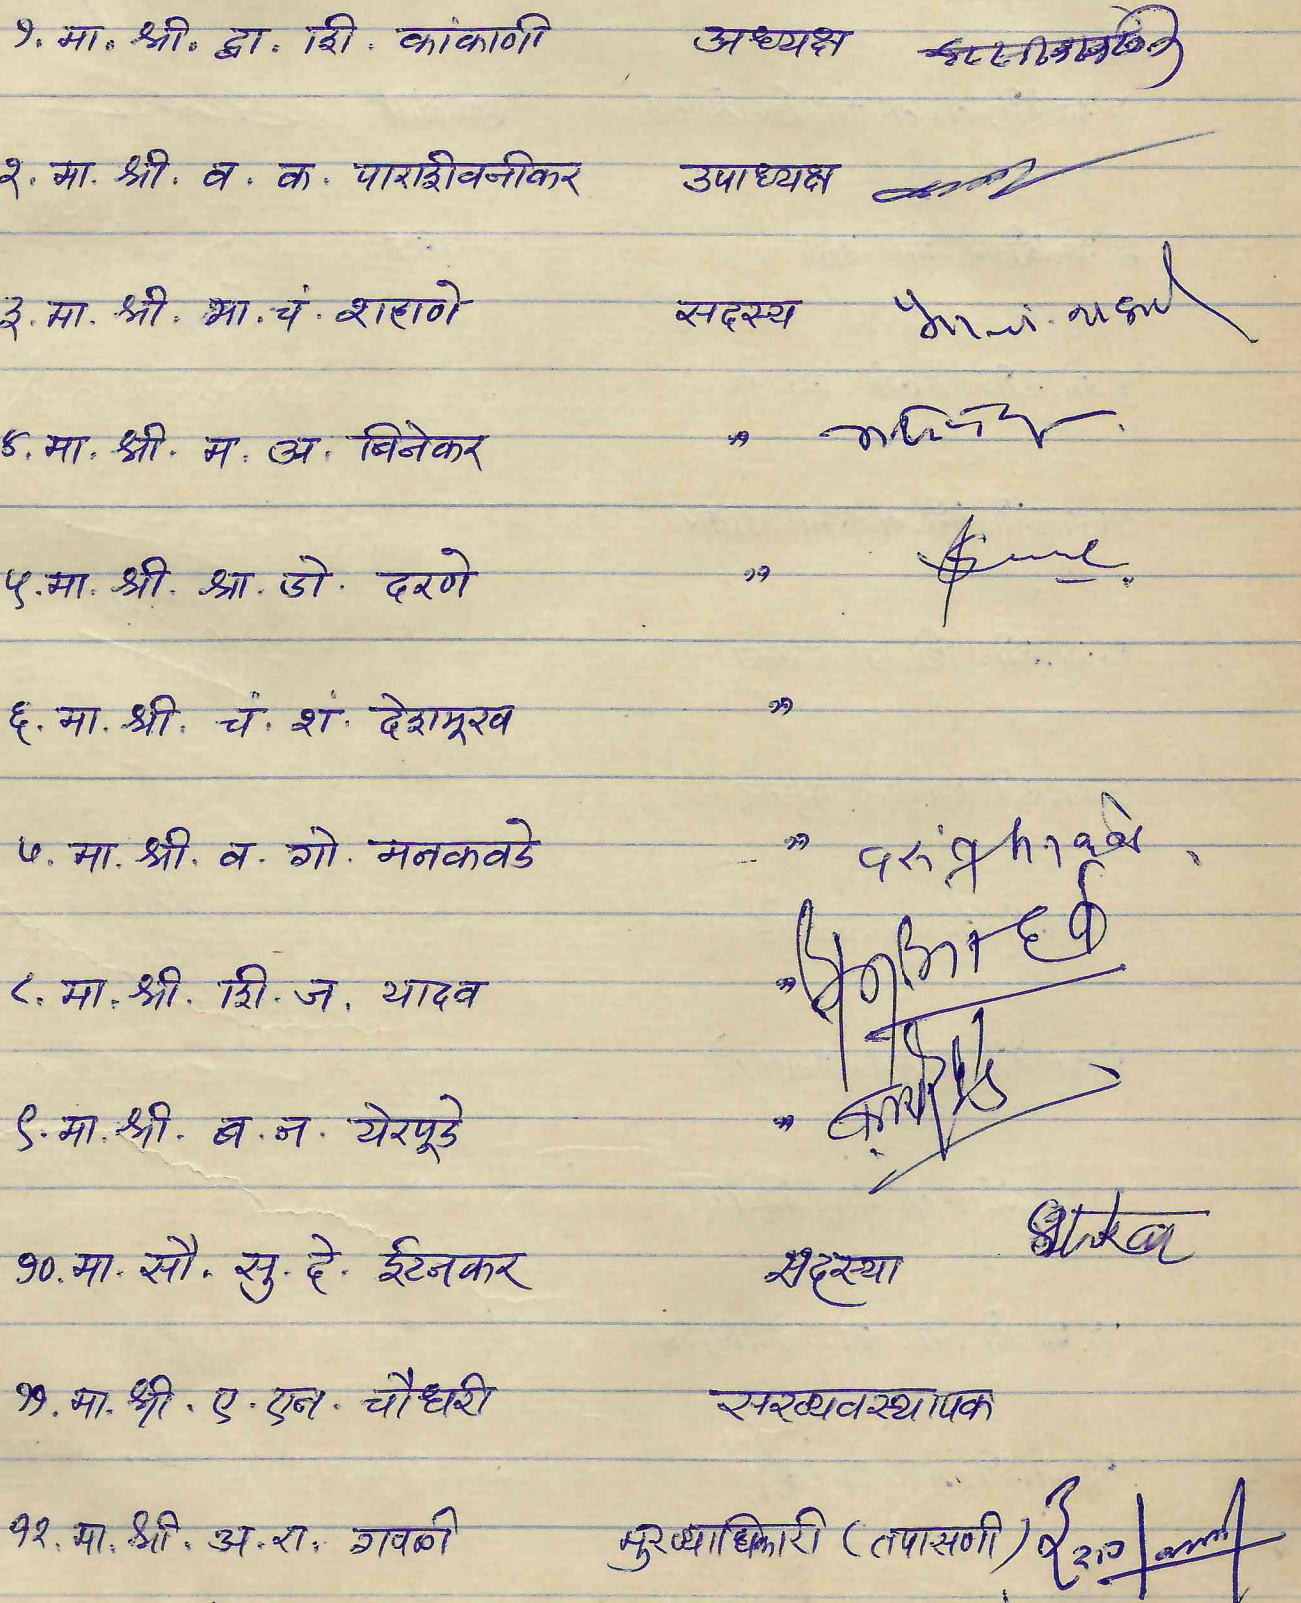 १. मा. श्री. द्वा. शि. कांकाणी अध्यक्ष
२. मा. श्री. व. क. पाराशीवनीकर उपाध्यक्ष
३. मा. श्री. भा. चं. शहाणे सदस्य
४. मा. श्री. म. अ. बिनेकर "
५. मा. श्री. श्रा. डो. दरणे "
६. मा. श्री. चं. शं. देशमूख "
७. मा. श्री. व. गो. मनकवडे "
८. मा. श्री. शि. ज. यादव "
९. मा. श्री. ब. न. येरपूडे "
१०. मा. सौ. सु. दे. ईटनकर सदस्या
११. मा. श्री. ए. एन. चौधरी सरव्यवस्थापक
१२. मा. श्री. अ. रा. गवळी मुख्याधिकारी (तपासणी)